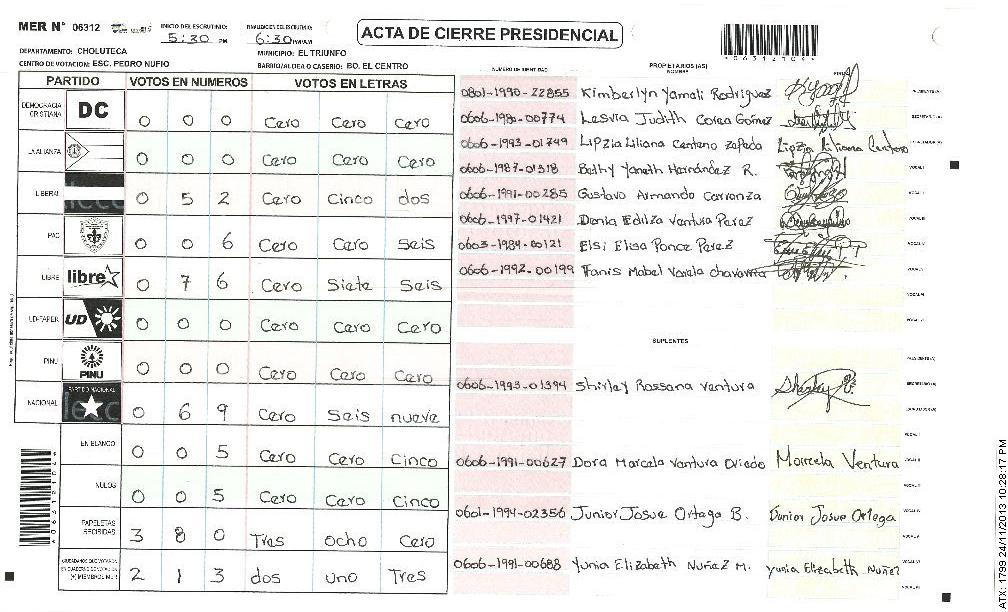 MER N° 06312
INICIO DEL ESCRUTINIO: 5:30 PM
FINALIZACION DEL ESCRUTINIO: 6:30 PM/AM
ACTA DE CIERRE PRESIDENCIAL
06312104
DEPARTAMENTO: CHOLUTECA
MUNICIPIO: EL TRIUNFO
CENTRO DE VOTACION: ESC. PEDRO NUFIO
BARRIO/ALDEA O CASERIO: BO. EL CENTRO
PARTIDO VOTOS EN NUMEROS VOTOS EN LETRAS
DEMOCRACIA CRISTIANA DC 0 0 0 Cero Cero Cero
LA ALIANZA 0 0 0 Cero Cero Cero
LIBERAL 0 5 2 Cero Cinco dos
PAC 0 0 6 Cero Cero Seis
LIBRE libre 0 7 6 Cero Siete Seis
UD-FAPER UD 0 0 0 Cero Cero Cero
PINU PINU 0 0 0 Cero Cero Cero
NACIONAL PARTIDO NACIONAL 0 6 9 Cero Seis nueve
EN BLANCO 0 0 5 Cero Cero Cinco
NULOS 0 0 5 Cero Cero Cinco
PAPELETAS RECIBIDAS 3 8 0 Tres ocho Cero
CIUDADANOS QUE VOTARON EN CUADERNO DE VOTACION (+) MIEMBROS MER 2 1 3 dos uno Tres
NUMERO DE IDENTIDAD
PROPIETARIOS (AS)
NOMBRE
FIRMA
0801-1990-22855 Kimberlyn Yamali Rodriguez PRESIDENTE(A)
0606-1980-00774 Lesvia Judith Corea Gomez SECRETARIO(A)
0606-1993-01749 Lipzia Liliana Centeno Zapeda Lipzia Liliana Centeno
0606-1987-01318 Bethy Yaneth Hernández R. VOCAL I
0606-1991-00285 Gustavo Armando Carranza VOCAL II
0606-1997-01421 Denia Ediza Ventura Perez VOCAL III
0603-1984-00121 Elsi Elisa Ponce Perez VOCAL IV
0606-1992-00199 Fanis Mabel Varela chavarria VOCAL V
SUPLENTES
PRESIDENTE(A)
0606-1993-01394 Shirley Rossana Ventura SECRETARIO(A)
0606-1991-00627 Dora Marcela Ventura Oviedo Marcela Ventura
0601-1994-02356 Junior Josue Ortega B. Junior Josue Ortega
0606-1991-00688 Yunia Elizabeth Nuñez M. Yunia Elizabeth Nuñez
ATX: 1799 24/11/2013 10:28:17 PM